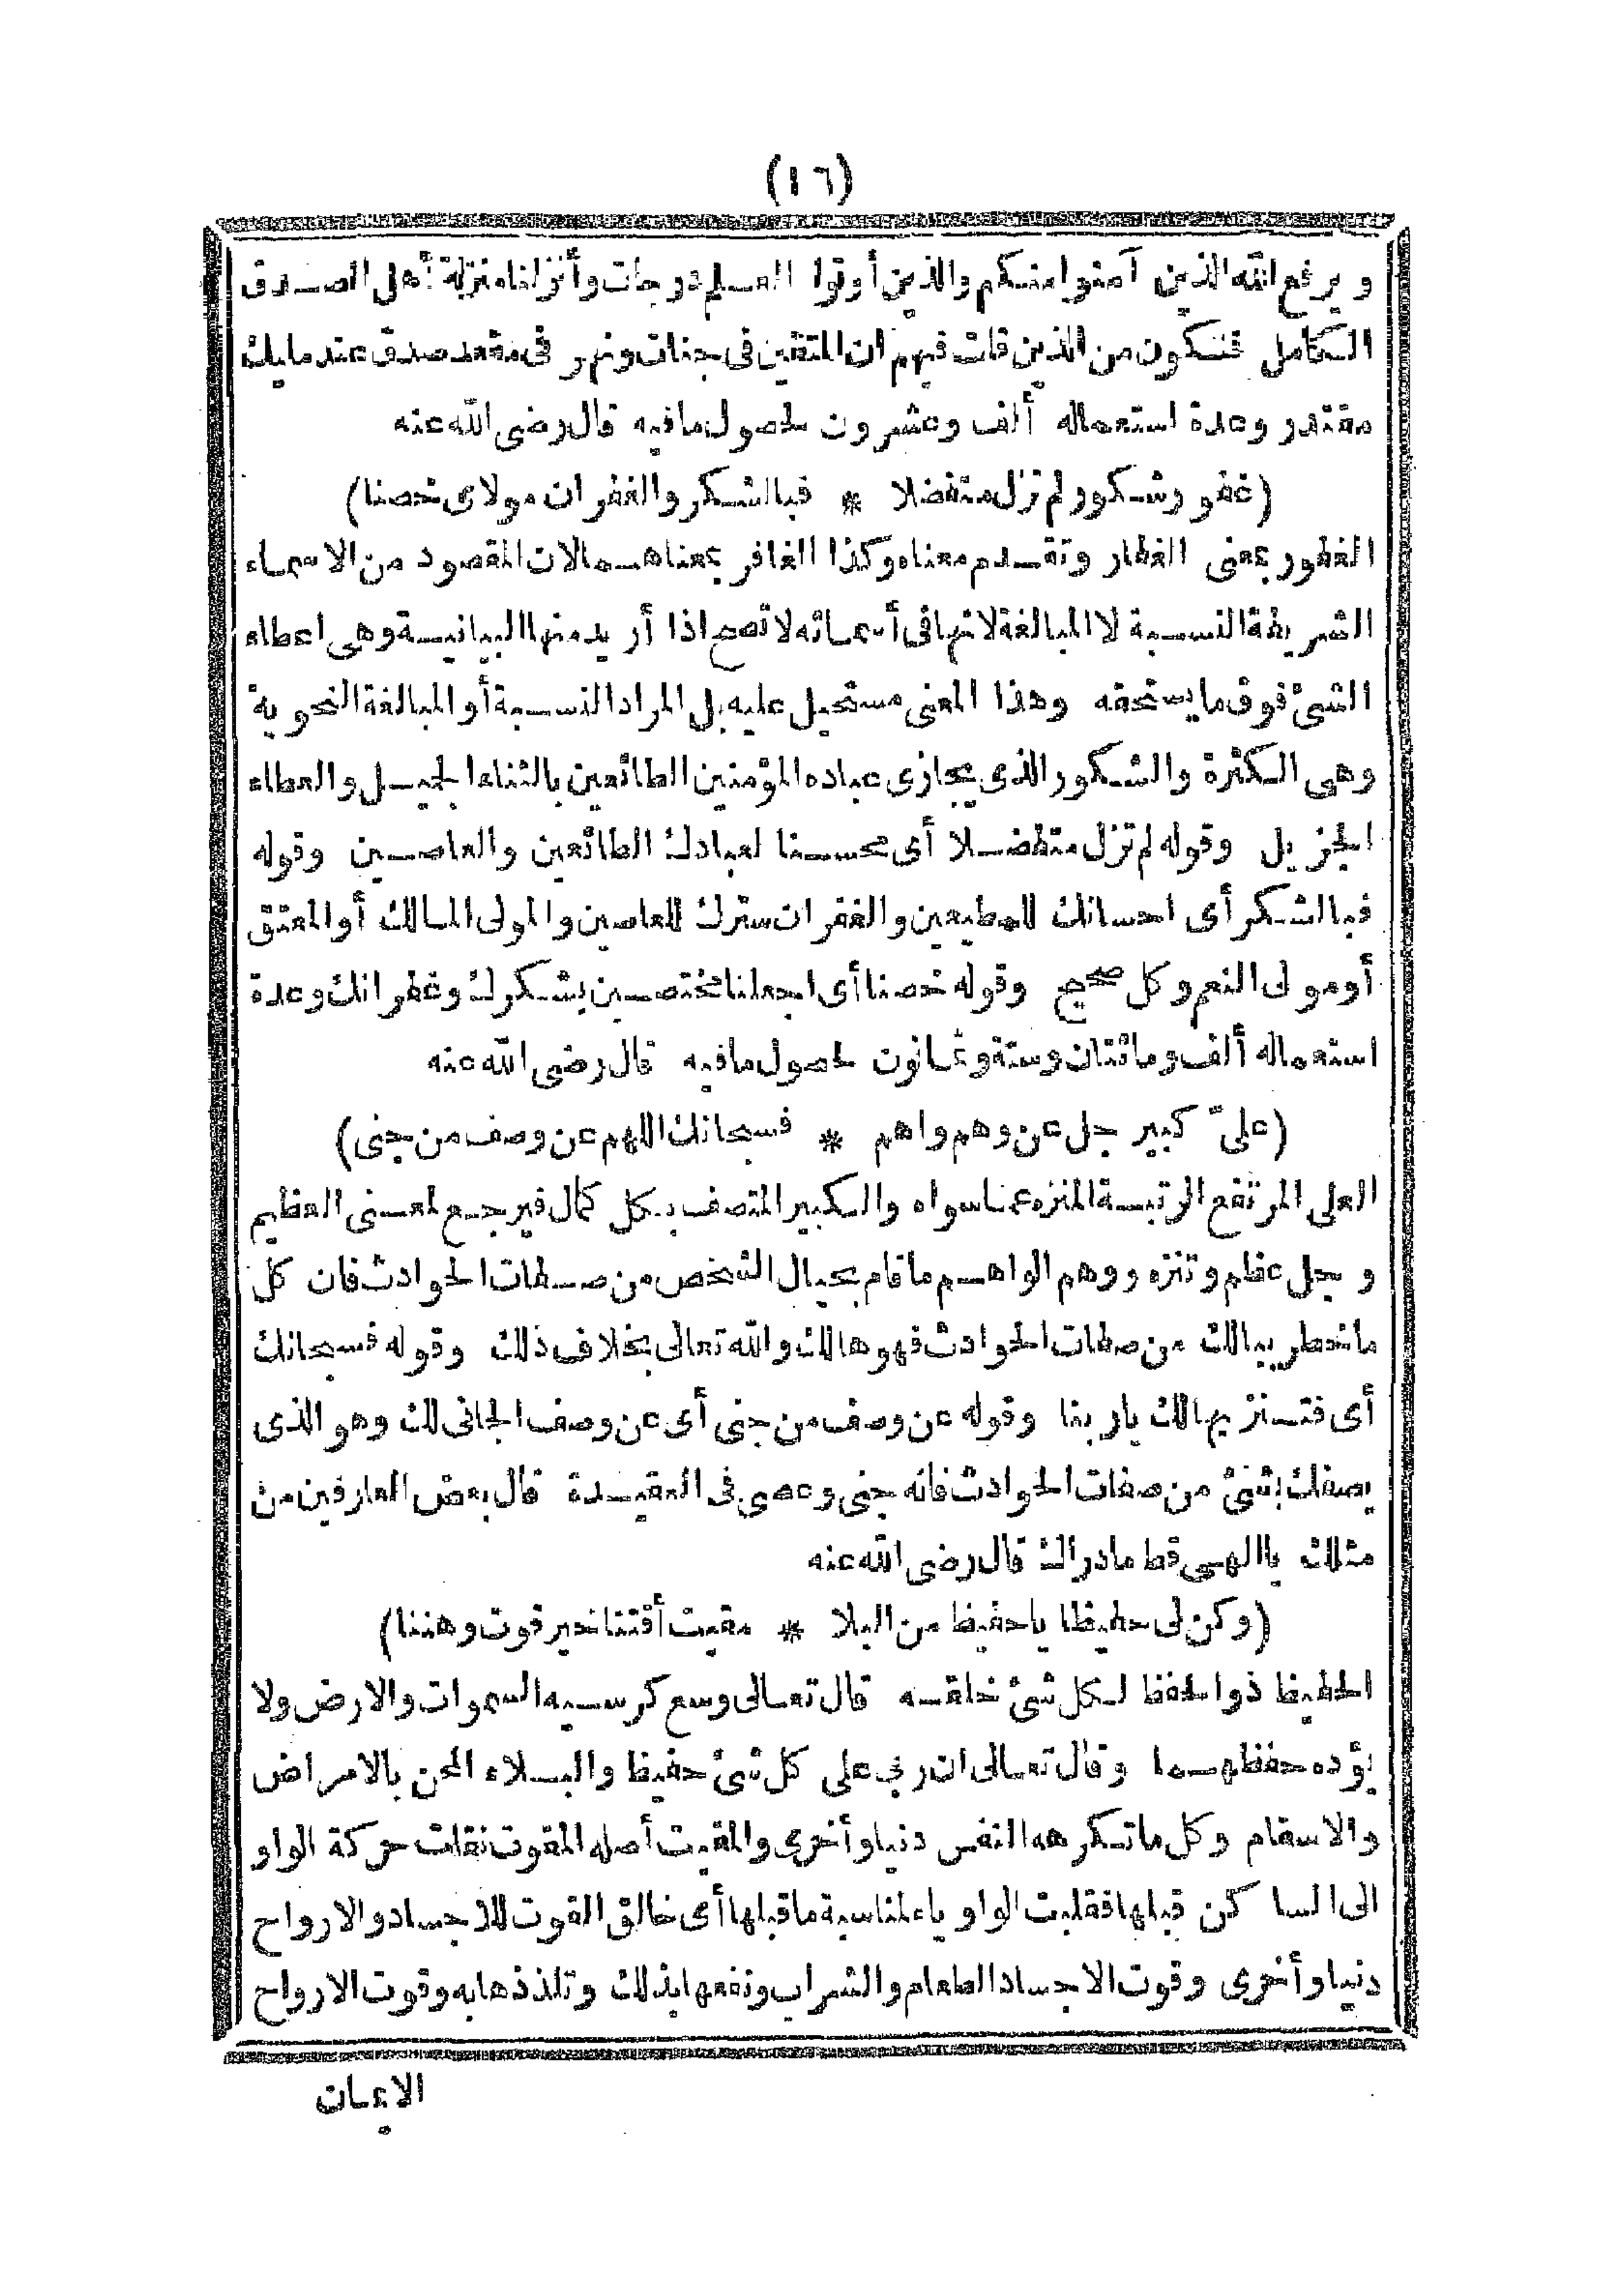 (١٦)
ويرفع الله الذين آمنوا منكم والذين أوتوا العلم درجات وأنزلنا منزلة أهل الصدق
الكامل فنكون من الذين قلت فيهم ان المتقين فى جنات ونهر فى مقعد صدق عند مليك
مقتدر وعدة استعماله ألف وعشرون لحصول مافيه قال رضى الله عنه
(غفور شكور لم تزل متفضلا * فبالشكر والغفران مولاى خصنا)
الغفور بمعنى الغفار وتقدم معناه وكذا الغافر بمعناهما لان المقصود من الاسماء
الشريفة النسبة لا المبالغة لانها فى أسمائه لا تصح اذا أريد منها البيانية وهى اعطاء
الشئ فوق ما يستحقه وهذا المعنى مستحيل عليه بل المراد النسبة أو المبالغة النحوية
وهى الكثرة والشكور الذى يجازى عباده المؤمنين الطائعين بالثناء الجميل والعطاء
الجزيل وقوله لم تزل متفضلا أى محسنا لعبادك الطائعين والعاصين وقوله
فبالشكر أى احسانك للمطيعين والغفران سترك للعاصين والمولى المالك أو المعتق
أو مولى النعم وكل صحيح وقوله خصنا أى اجعلنا مختصين بشكرك وغفرانك وعدة
استعماله ألف ومائتان وستة وثمانون لحصول مافيه قال رضى الله عنه
(علىّ كبير جل عن وهم واهم * فسبحانك اللهم عن وصف من جنى)
العلى المرتفع الرتبة المنزه عما سواه والكبير المتصف بكل كمال فيرجع لمعنى العظيم
وجل عظم وتنزه ووهم الواهم ما قام بخيال الشخص من صفات الحوادث فان كل
ما خطر ببالك من صفات الحوادث فهو هالك والله تعالى بخلاف ذلك وقوله فسبحانك
أى فتنزيها لك ياربنا وقوله عن وصف من جنى أى عن وصف الجانى لك وهو الذى
يصفك بشئ من صفات الحوادث فانه جنى وعصى فى العقيدة قال بعض العارفين من
مثلك يا الهى قط ما دراك قال رضى الله عنه
(وكن لى حفيظا يا حفيظ من البلا * مقيت أقتنا خير قوت وهننا)
الحفيظ ذو الحفظ لكل شئ خلقه قال تعالى وسع كرسيه السموات والارض ولا
يؤده حفظهما وقال تعالى ان ربى على كل شئ حفيظ والبلاء المحن بالامراض
والاسقام وكل ما تكرهه النفس دنيا وأخرى والمقيت أصله المقوت نقلت حركة الواو
الى الساكن قبلها فقلبت الواو ياء لمناسبة ما قبلها أى خالق القوت للاجساد والارواح
دنيا وأخرى وقوت الاجساد الطعام والشراب ونفعها بذلك وتلذذها به وقوت الارواح
الايمان